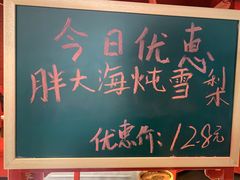 今日优惠
胖大海炖雪梨
优惠价：12.8元